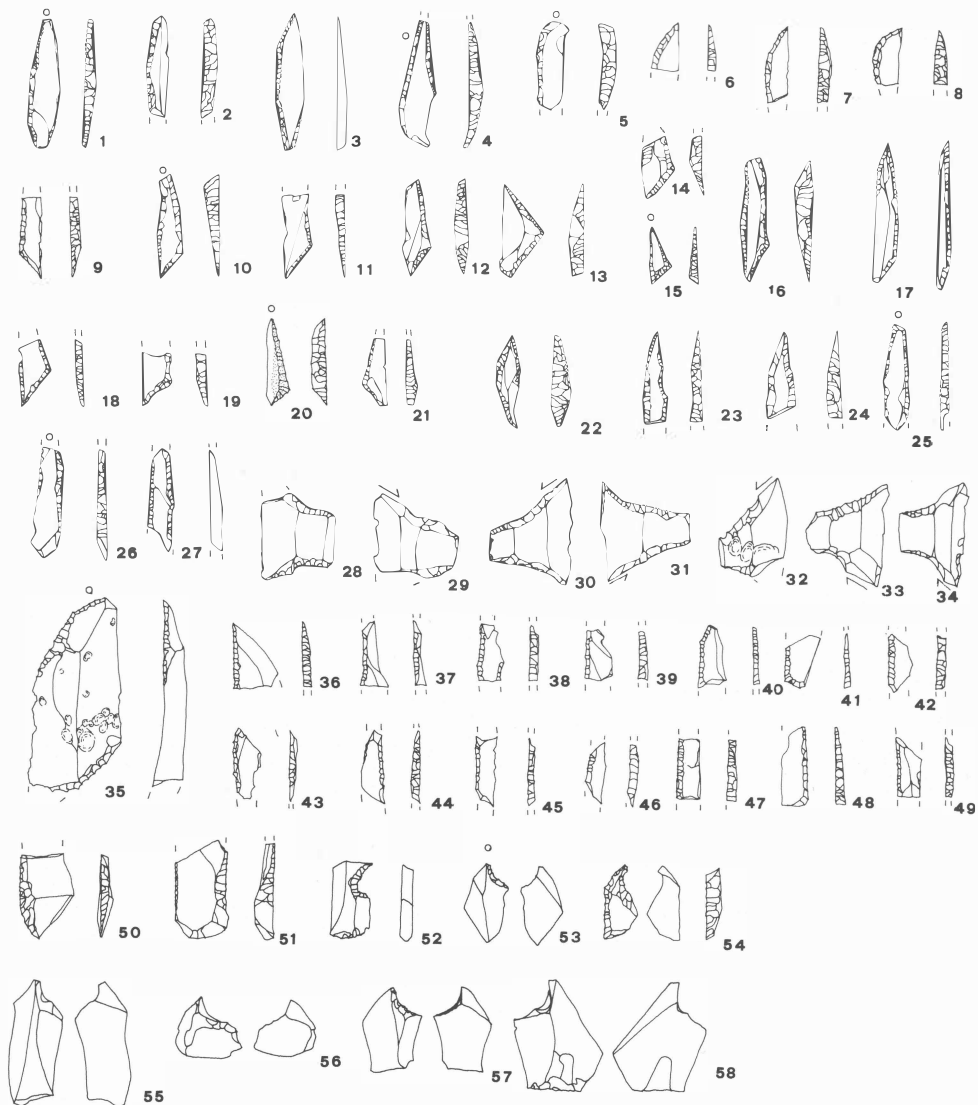 1 2 3 4 5 6 7 8
9 10 11 12 13 14 15 16 17
18 19 20 21 22 23 24 25
26 27 28 29 30 31 32 33 34
35 36 37 38 39 40 41 42
43 44 45 46 47 48 49
50 51 52 53 54
55 56 57 58